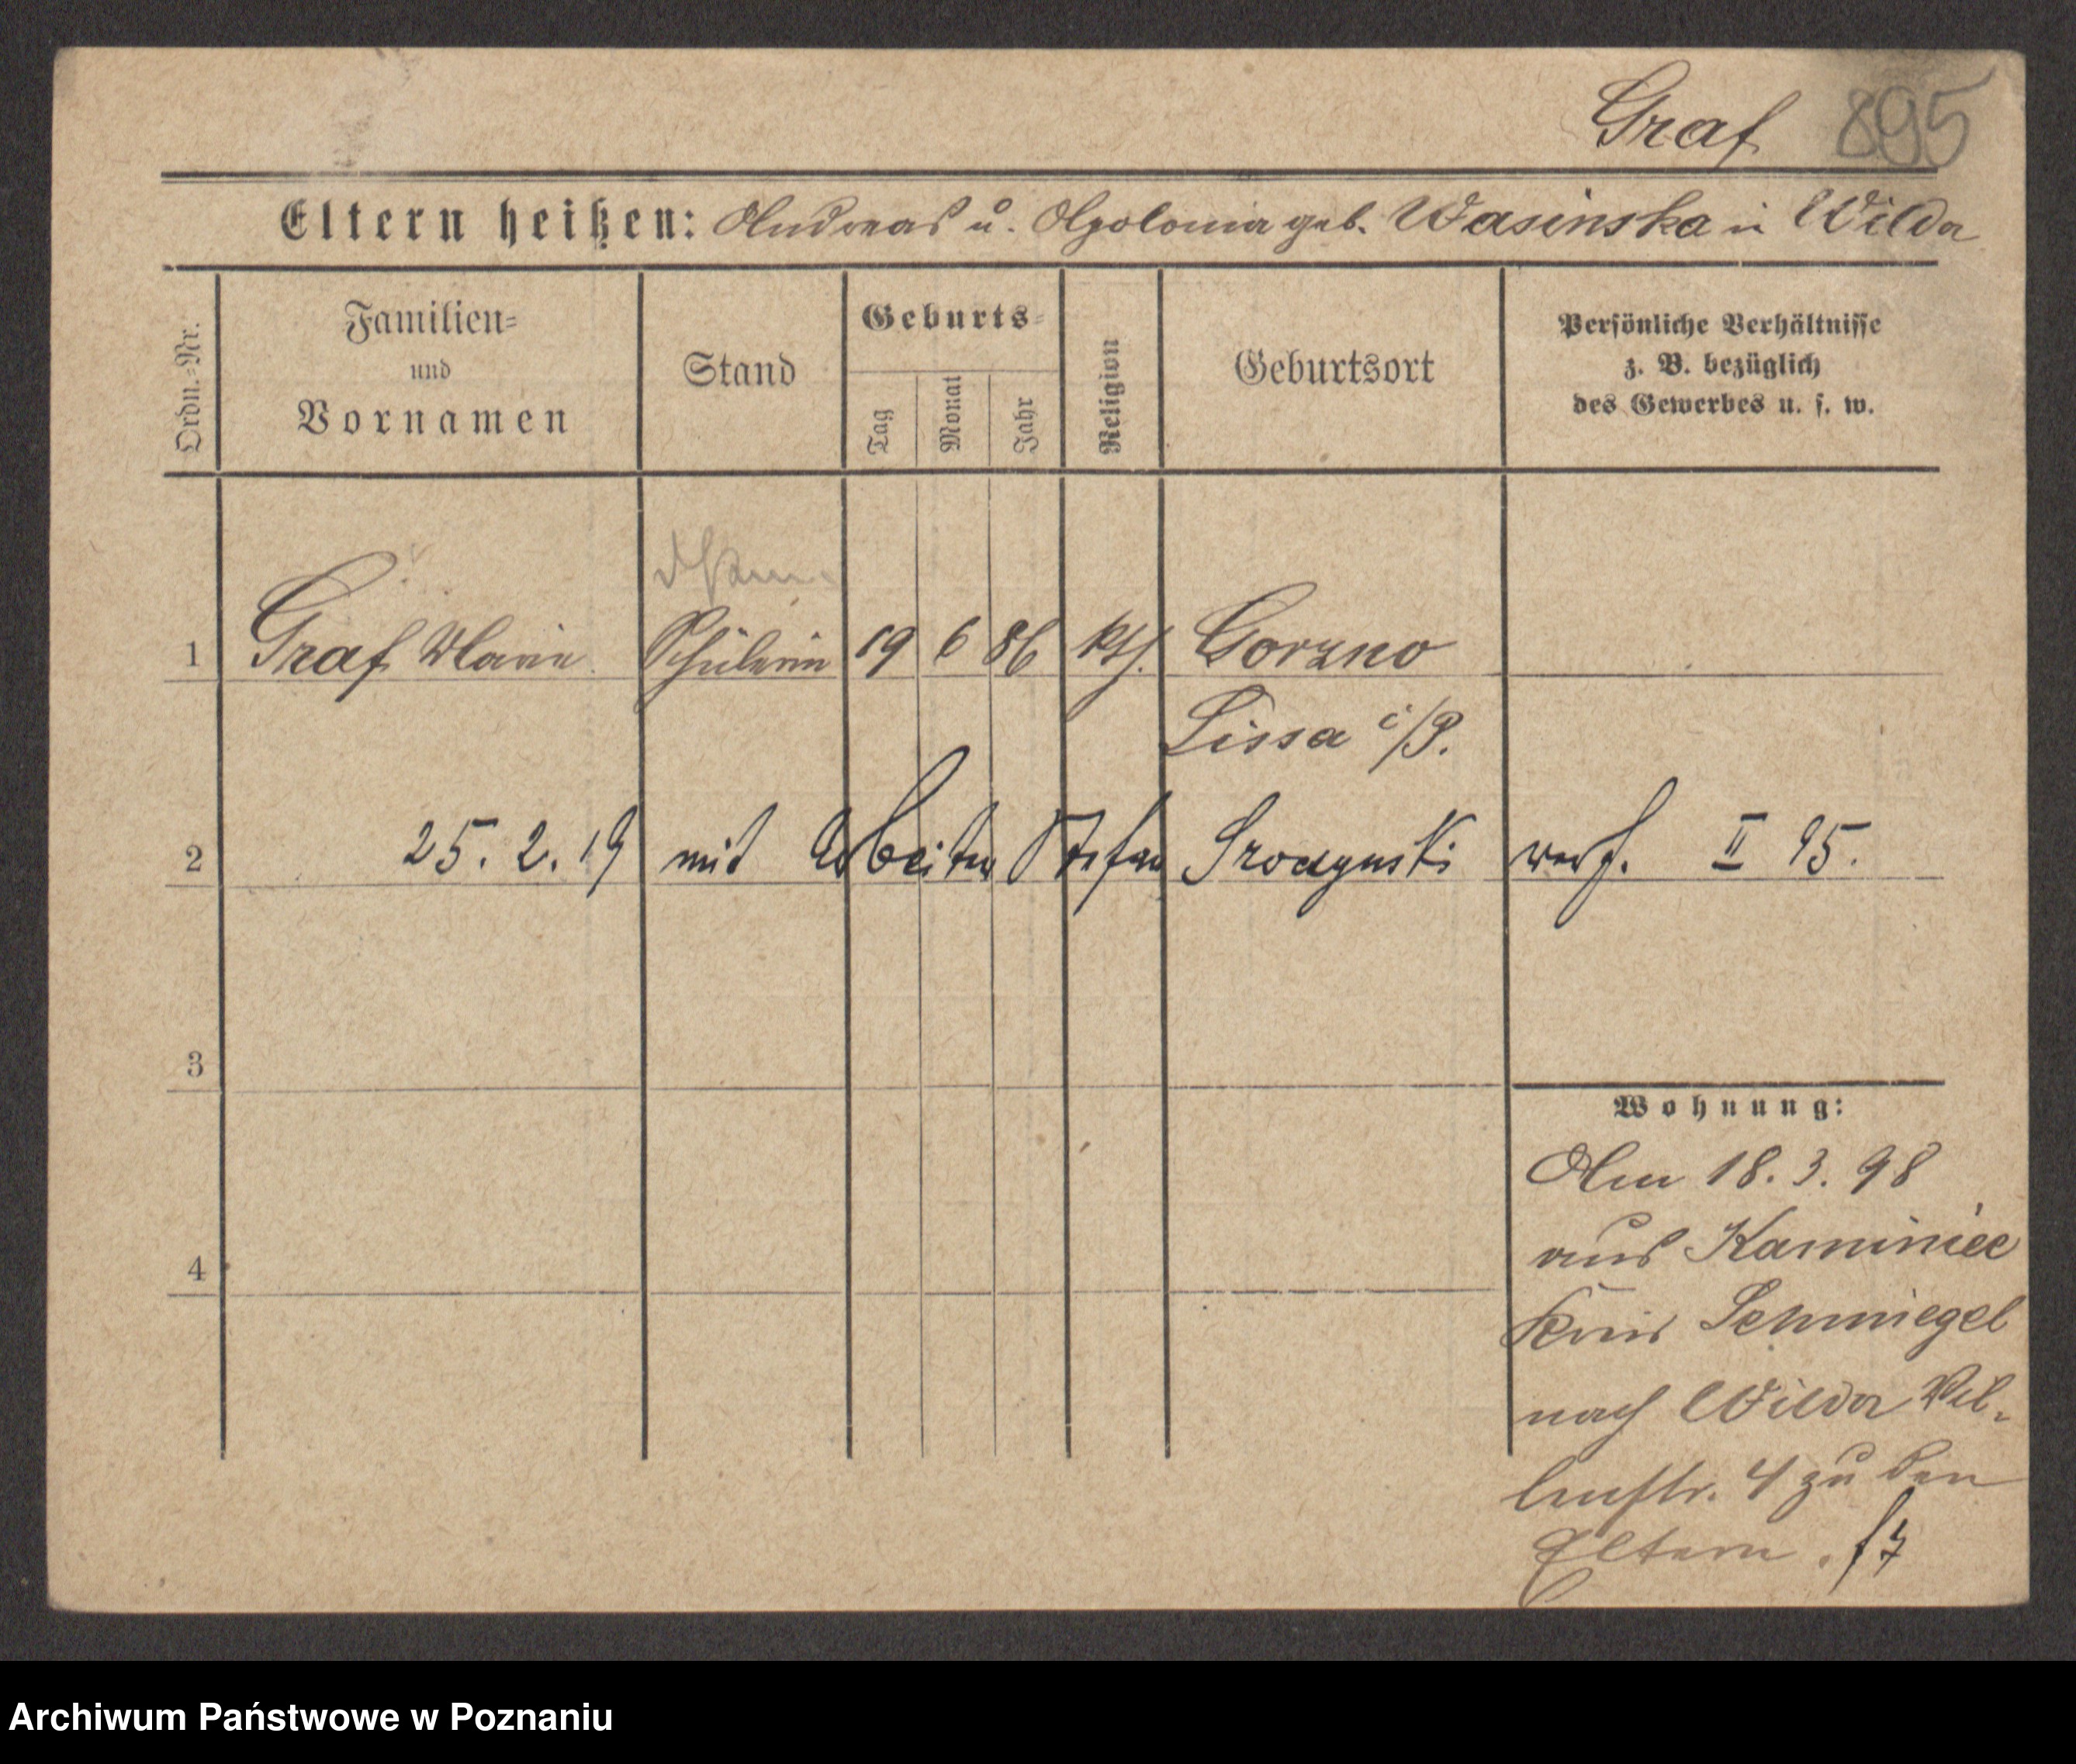 Graf 895
Eltern heißen: Andreas u. Apolonia geb. Wasinska in Wilda
Ordn.-Nr.
Familien-
und
Vornamen
Stand
Geburts-
Tag
Monat
Jahr
Religion
Geburtsort
Persönliche Verhältnisse
z. B. bezüglich
des Gewerbes u. s. w.
1 Graf Marie Schülerin 19 6 86 kth. Gorzno
Lissa i/P.
2 25. 2. 19 mit Arbeiter Stefan verh. II 95.
3
Wohnung:
4
Am 18. 3. 98
aus Kaminiec
Kreis Schmiegel
nach Wilda Vil-
lenstr. 4 zu den
Eltern.
Archiwum Państwowe w Poznaniu